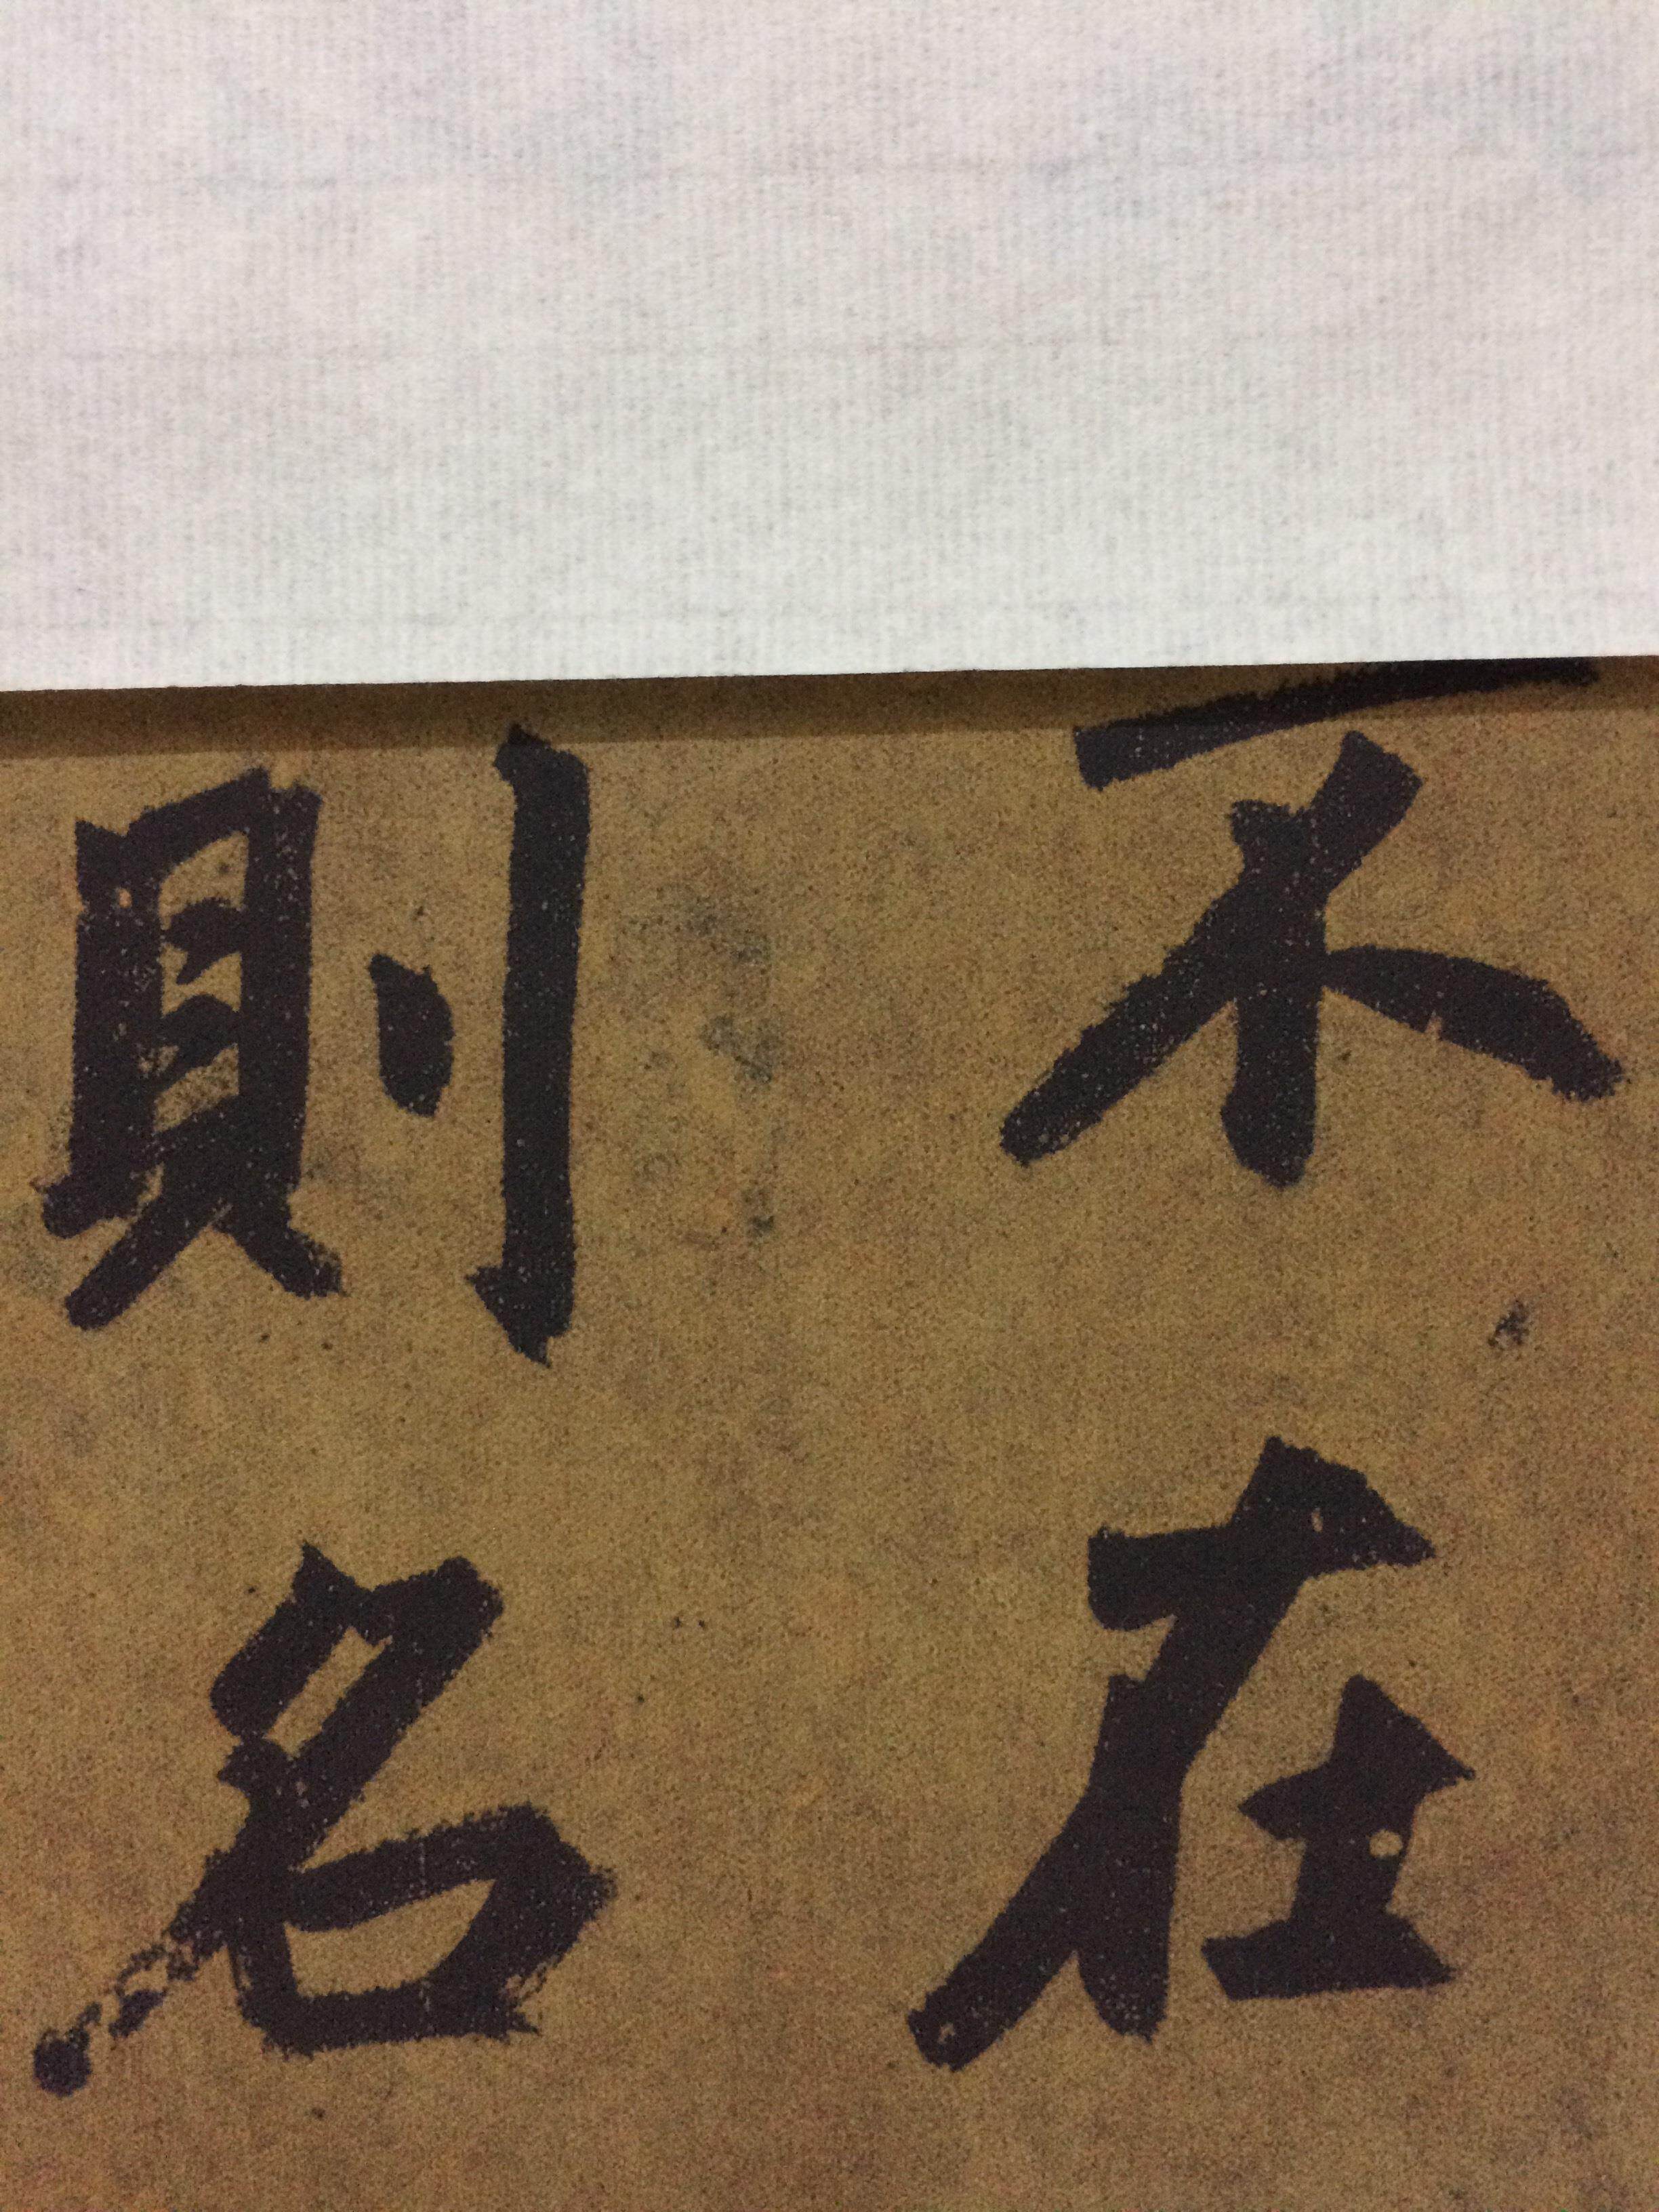 不在
則名